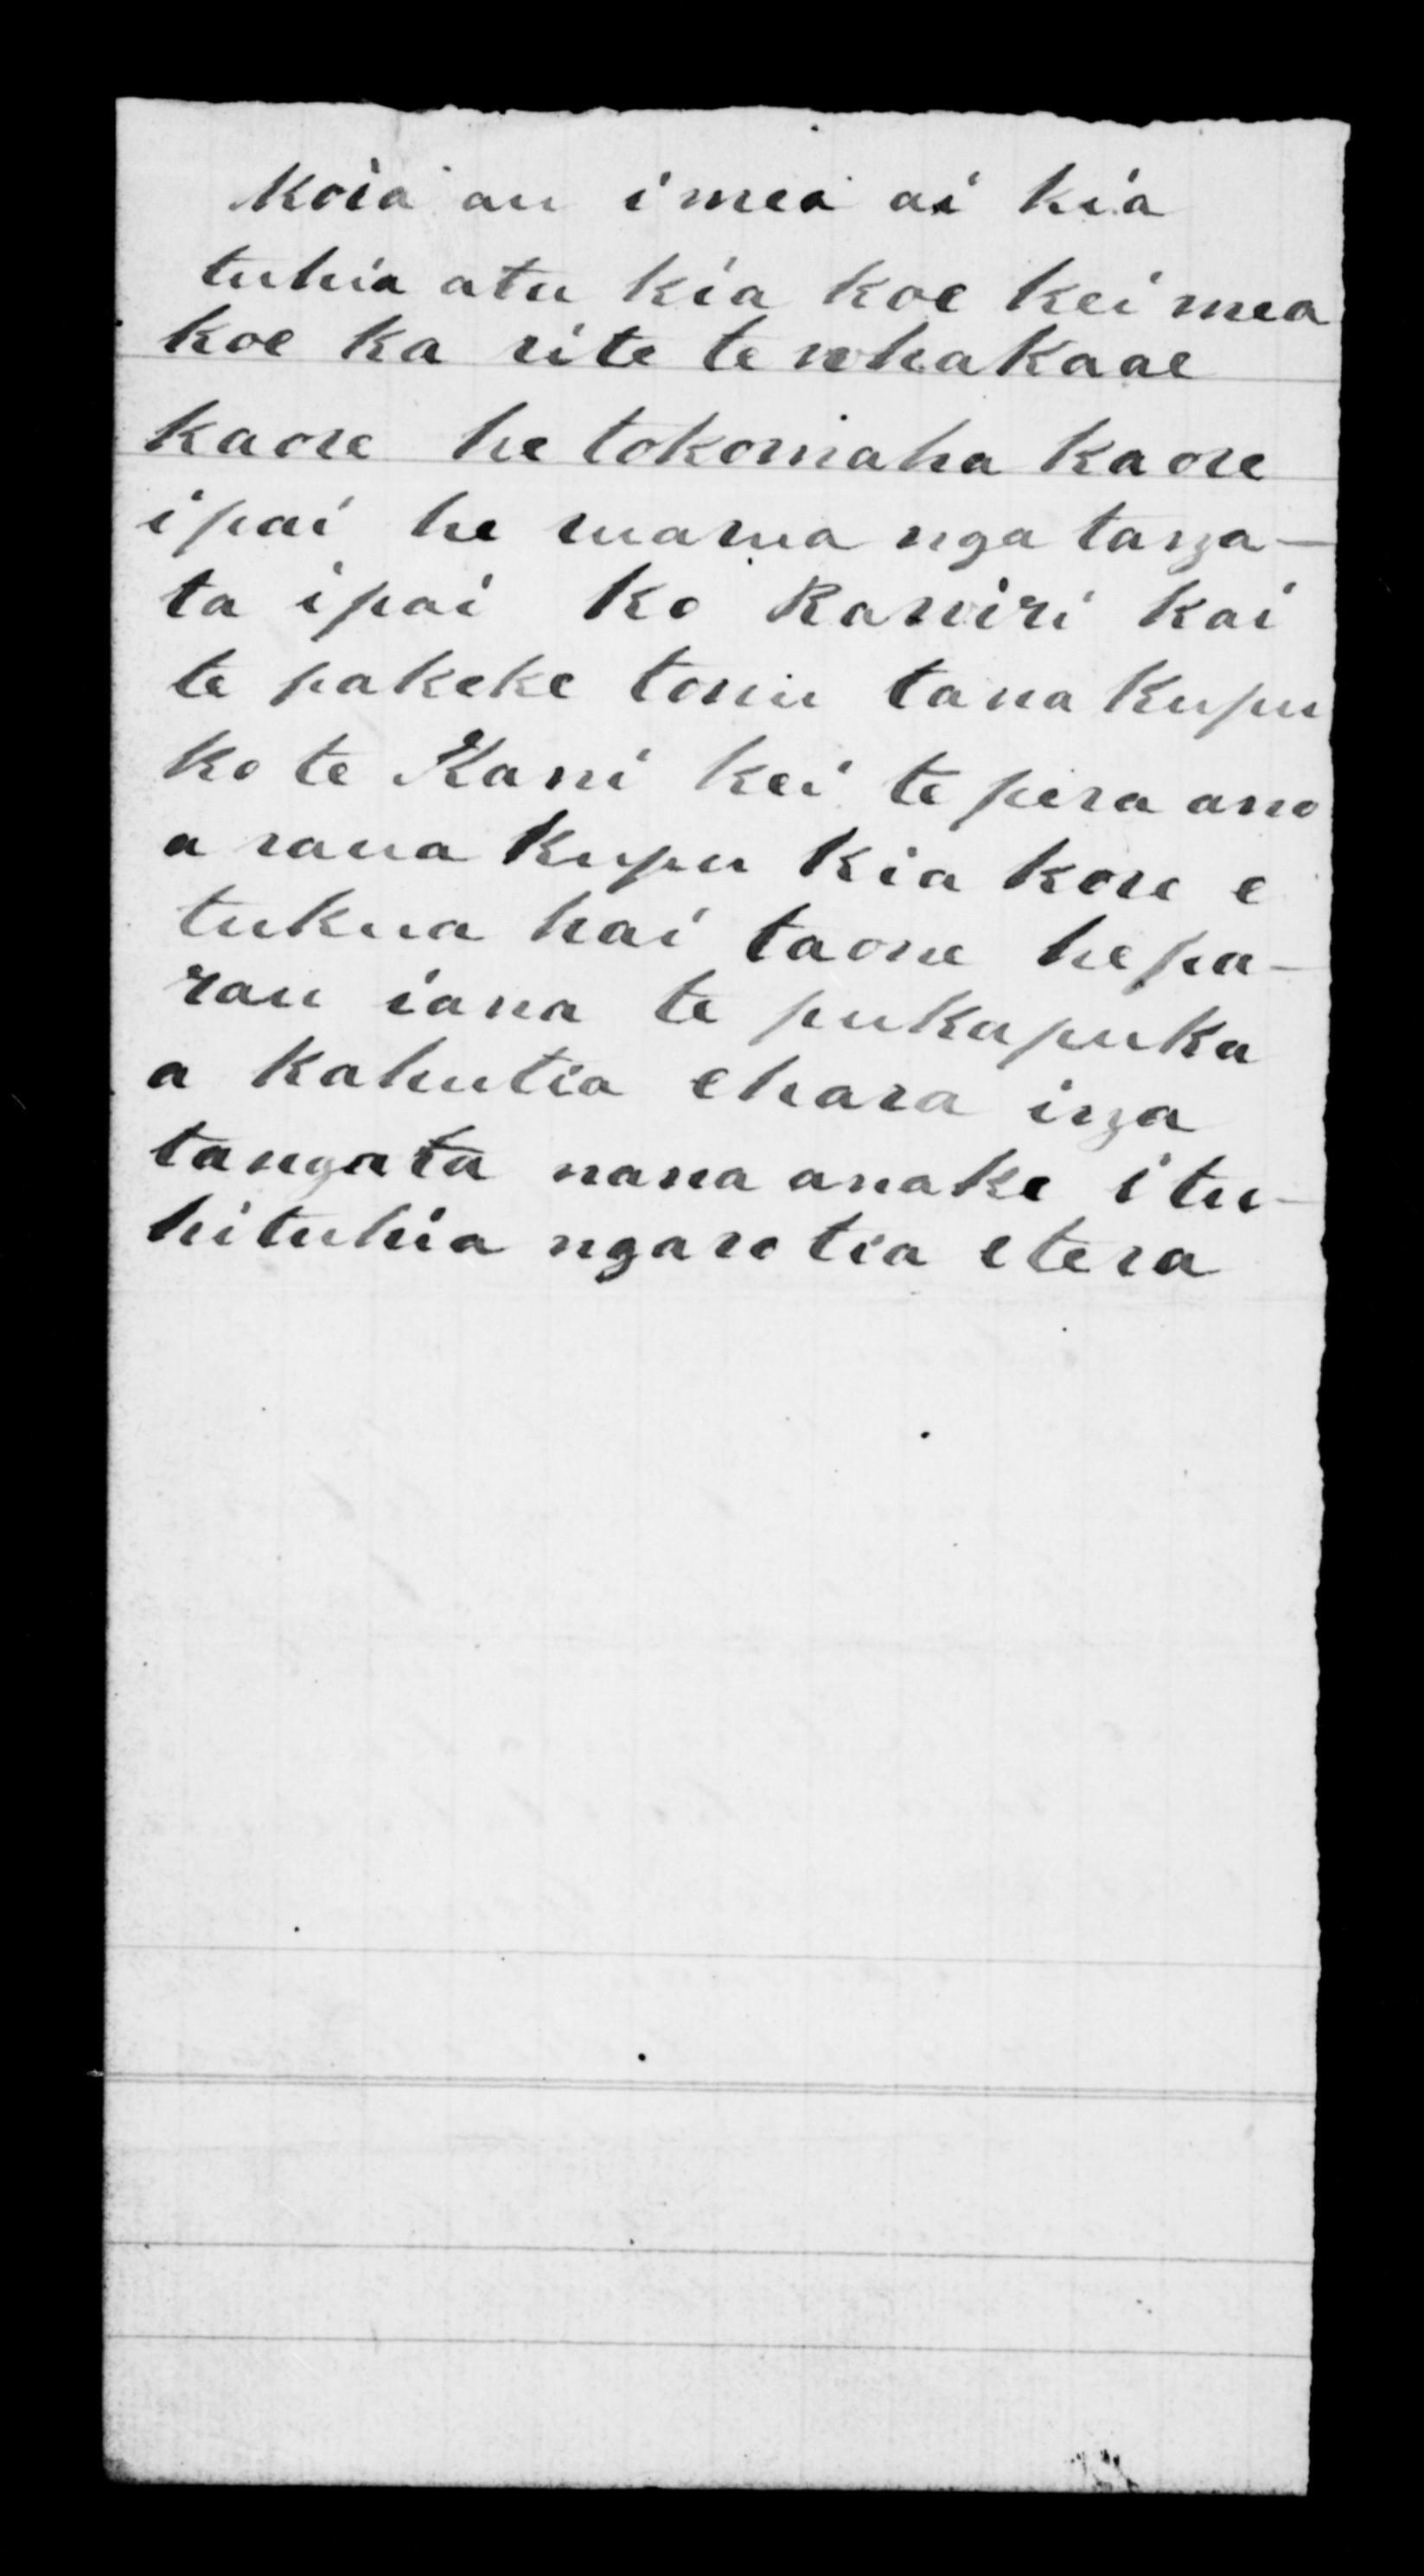 Koia au i mea ai kia
tuhia atu kia koe kei mea
koe ka rite te whakaae
kaore he tokomaha kaore
i pai he ruarua nga tanga-
ta i pai ko Rawiri kai
te pakeke tonu tana kupu
ko te Kani kei te pera ano
a raua kupu kia kore e
tukua hai taone he pa-
rau iana te pukapuka
a kahutia ehara inga
tangata nana anake i tu-
hituhia ngarotia etera